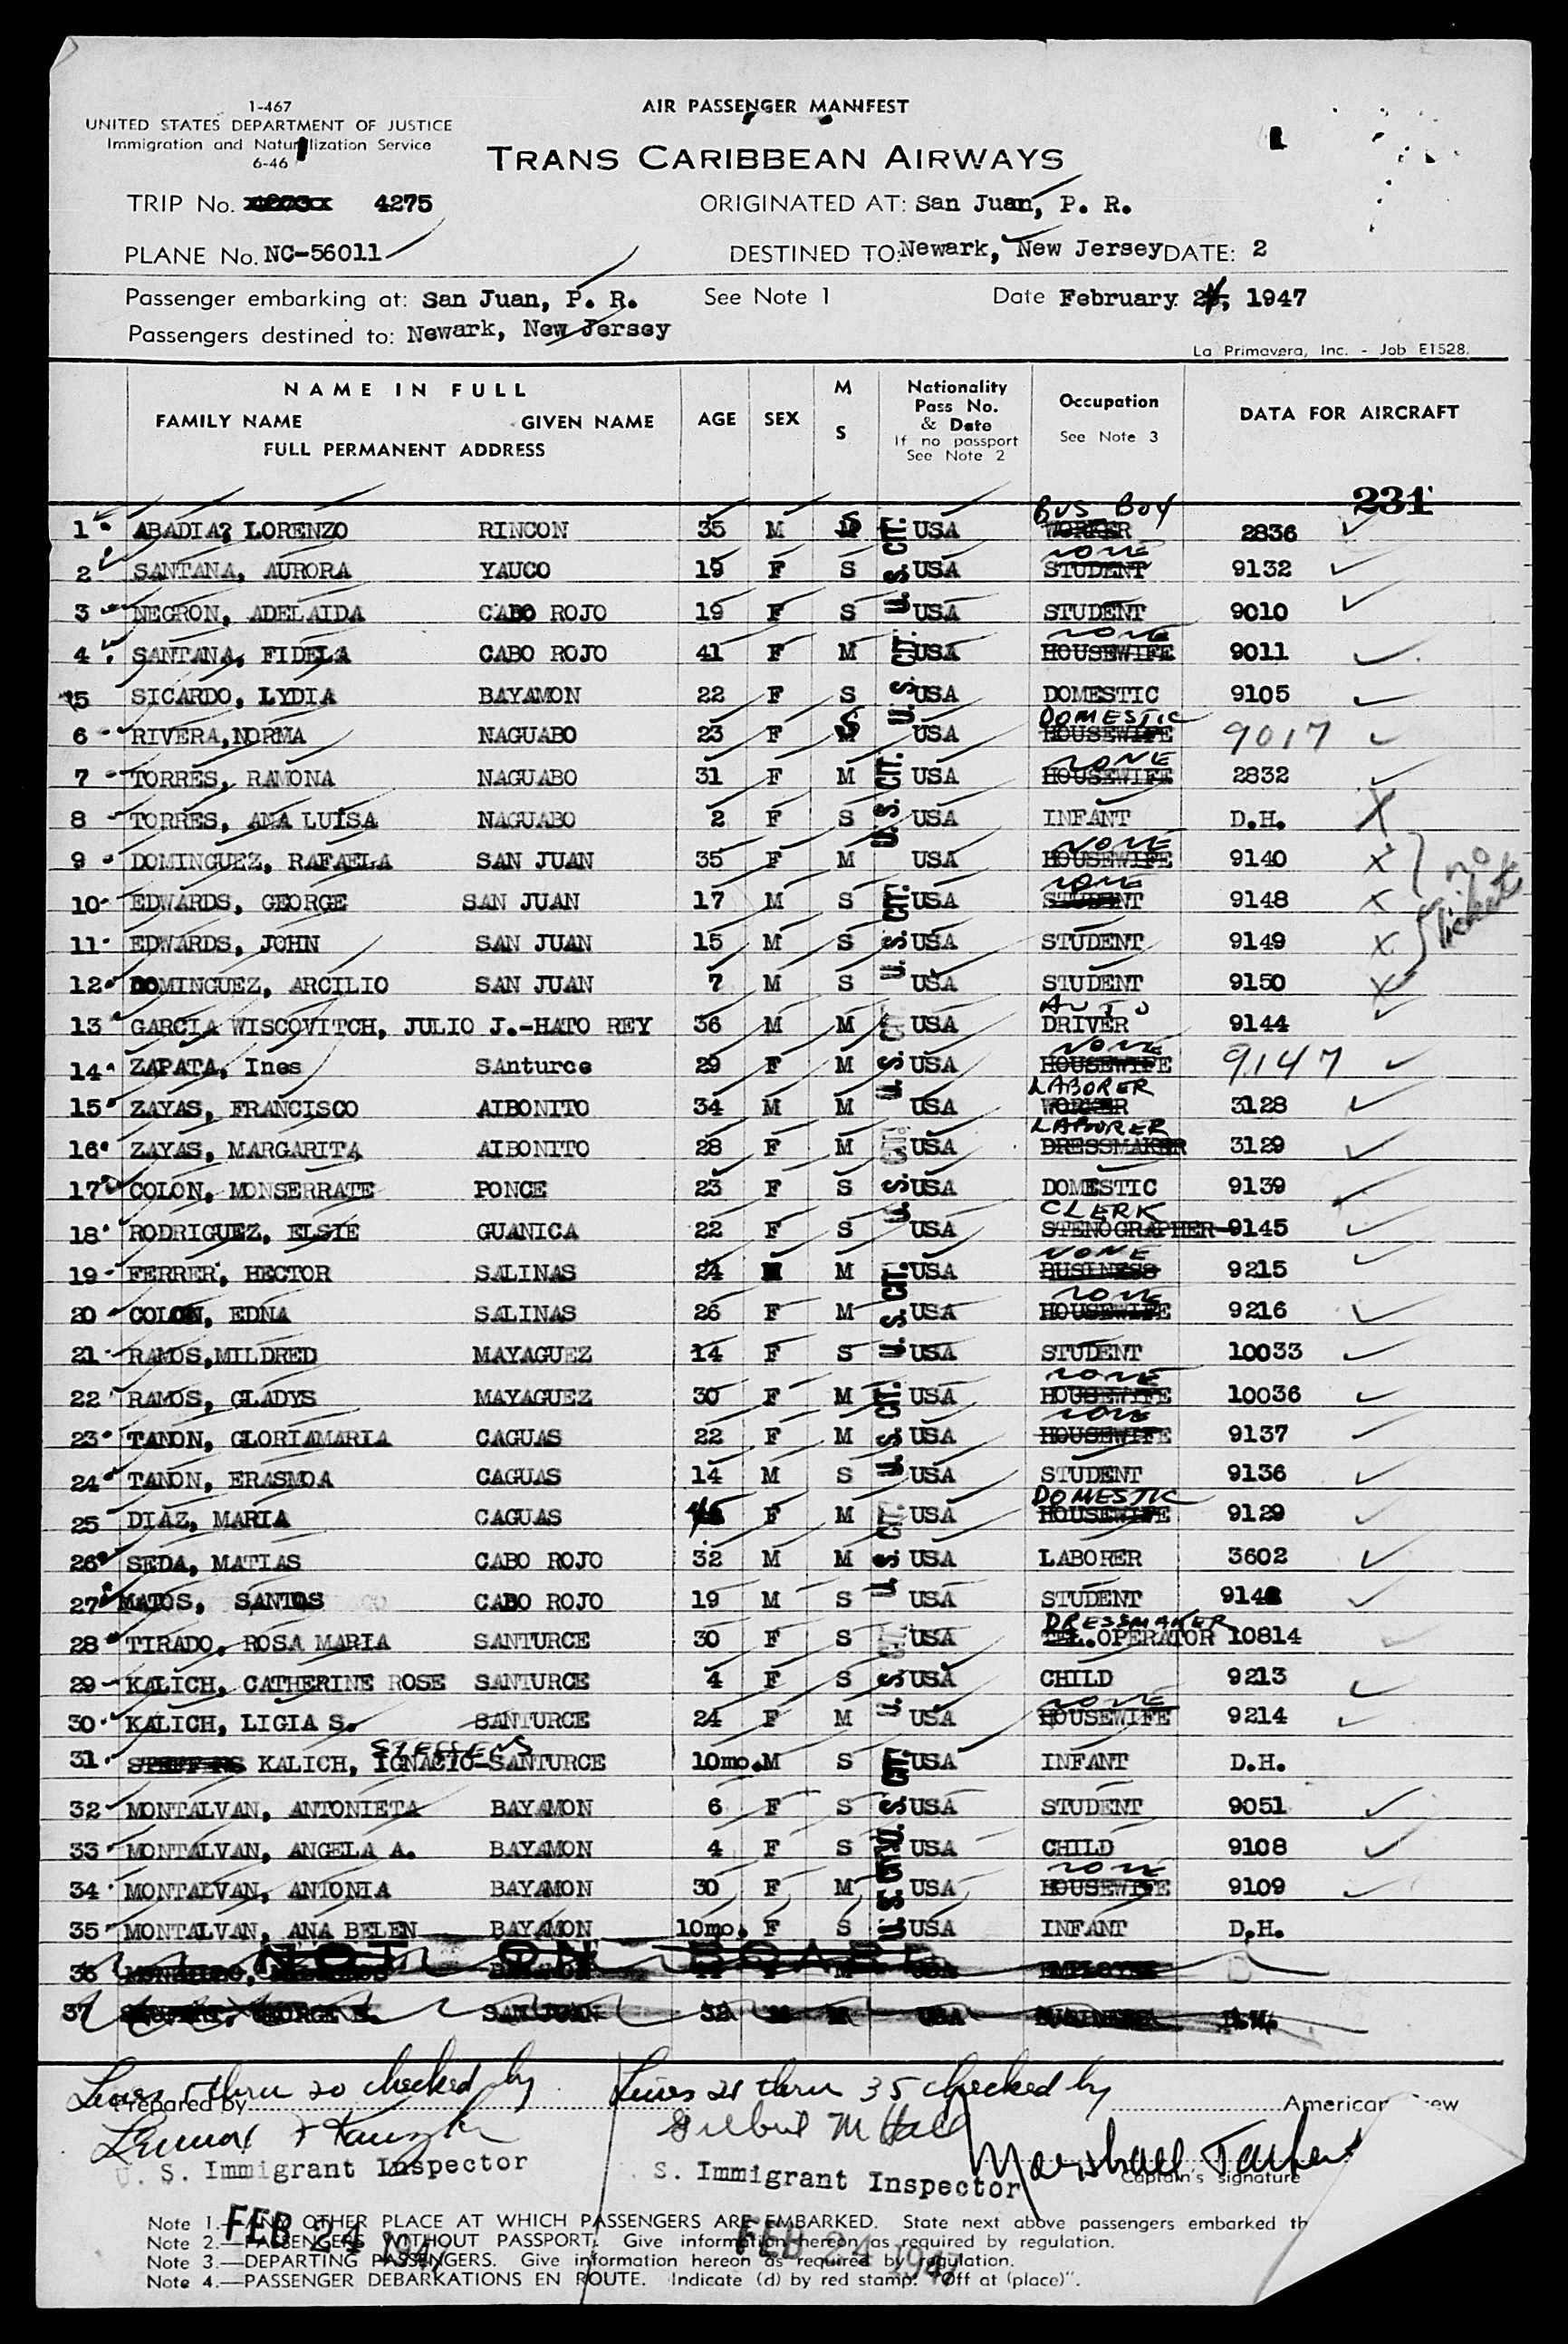 1-467
UNITED STATES DEPARTMENT OF JUSTICE
Immigration and Naturalization Service
6-46
AIR PASSENGER MANIFEST
TRANS CARIBBEAN AIRWAYS
TRIP No. 4275
ORIGINATED AT: San Juan, P. R.
PLANE No. NC-56011
DESTINED TO: Newark, New Jersey DATE: 2
Passenger embarking at: San Juan, P. R. See Note 1 Date February 24, 1947
Passengers destined to: Newark, New Jersey
La Primavera, Inc. - Job E1528.
NAME IN FULL
FAMILY NAME GIVEN NAME
FULL PERMANENT ADDRESS
AGE SEX M S
Nationality Pass No. & Date If no passport See Note 2
Occupation See Note 3
DATA FOR AIRCRAFT
231
1 ABADIA? LORENZO RINCON 35 M S U.S. CIT. USA WORKER BUS BOY 2836
2 SANTANA, AURORA YAUCO 19 F S USA STUDENT NONE 9132
3 NEGRON, ADELAIDA CABO ROJO 19 F S USA STUDENT 9010
4 SANTANA, FIDELA CABO ROJO 41 F M U.S. CIT. USA HOUSEWIFE NONE 9011
5 SICARDO, LYDIA BAYAMON 22 F S USA DOMESTIC 9105
6 RIVERA, NORMA NAGUABO 23 F S USA HOUSEWIFE DOMESTIC 9017
7 TORRES, RAMONA NAGUABO 31 F M U.S. CIT. USA HOUSEWIFE NONE 2832
8 TORRES, ANA LUISA NAGUABO 2 F S USA INFANT D.H. X
9 DOMINGUEZ, RAFAELA SAN JUAN 35 F M USA HOUSEWIFE NONE 9140 X no
10 EDWARDS, GEORGE SAN JUAN 17 M S U.S. CIT. USA STUDENT NONE 9148 X ticket
11 EDWARDS, JOHN SAN JUAN 15 M S USA STUDENT 9149 X
12 DOMINGUEZ, ARCILIO SAN JUAN 7 M S USA STUDENT 9150 X
13 GARCIA WISCOVITCH, JULIO J.-HATO REY 36 M M U.S. CIT. USA AUTO DRIVER 9144
14 ZAPATA, Ines SAnturce 29 F M USA HOUSEWIFE NONE 9147
15 ZAYAS, FRANCISCO AIBONITO 34 M M USA WORKER LABORER 3128
16 ZAYAS, MARGARITA AIBONITO 28 F M U.S. CIT. USA DRESSMAKER LABORER 3129
17 COLON, MONSERRATE PONCE 23 F S USA DOMESTIC 9139
18 RODRIGUEZ, ELSIE GUANICA 22 F S USA STENOGRAPHER CLERK 9145
19 FERRER, HECTOR SALINAS 24 M M U.S. CIT. USA BUSINESS NONE 9215
20 COLON, EDNA SALINAS 26 F M USA HOUSEWIFE NONE 9216
21 RAMOS, MILDRED MAYAGUEZ 14 F S USA STUDENT 10033
22 RAMOS, GLADYS MAYAGUEZ 30 F M U.S. CIT. USA HOUSEWIFE NONE 10036
23 TANON, GLORIAMARIA CAGUAS 22 F M USA HOUSEWIFE NONE 9137
24 TANON, ERASMOA CAGUAS 14 M S USA STUDENT 9136
25 DIAZ, MARIA CAGUAS 45 F M U.S. CIT. USA HOUSEWIFE DOMESTIC 9129
26 SEDA, MATIAS CABO ROJO 32 M M USA LABORER 3602
27 MATOS, SANTOS CABO ROJO 19 M S USA STUDENT 914
28 TIRADO, ROSA MARIA SANTURCE 30 F S U.S. CIT. USA TEL. OPERATOR DRESSMAKER 10814
29 KALICH, CATHERINE ROSE SANTURCE 4 F S USA CHILD 9213
30 KALICH, LIGIA S. SANTURCE 24 F M USA HOUSEWIFE NONE 9214
31 STEFFENS KALICH, IGNACIO-SANTURCE 10mo. M S U.S. CIT. USA INFANT D.H.
32 MONTALVAN, ANTONIETA BAYAMON 6 F S USA STUDENT 9051
33 MONTALVAN, ANGELA A. BAYAMON 4 F S U.S. CIT. USA CHILD 9108
34 MONTALVAN, ANTONIA BAYAMON 30 F M USA HOUSEWIFE NONE 9109
35 MONTALVAN, ANA BELEN BAYAMON 10mo. F S USA INFANT D.H.
NOT ON BOARD
36 USA
37 GEORGE SAN JUAN 38 USA BUSINESS D.H.
Lines 1 thru 20 checked by Lines 21 thru 35 checked by
Prepared by American Crew
Gilbert M Hall
Marshall
U. S. Immigrant Inspector S. Immigrant Inspector Captain's signature
FEB 24 1947 FEB 24 194
Note 1.—ANY OTHER PLACE AT WHICH PASSENGERS ARE EMBARKED. State next above passengers embarked th
Note 2.—PASSENGERS WITHOUT PASSPORT. Give information hereon as required by regulation.
Note 3.—DEPARTING PASSENGERS. Give information hereon as required by regulation.
Note 4.—PASSENGER DEBARKATIONS EN ROUTE. Indicate (d) by red stamp: "Off at (place)".